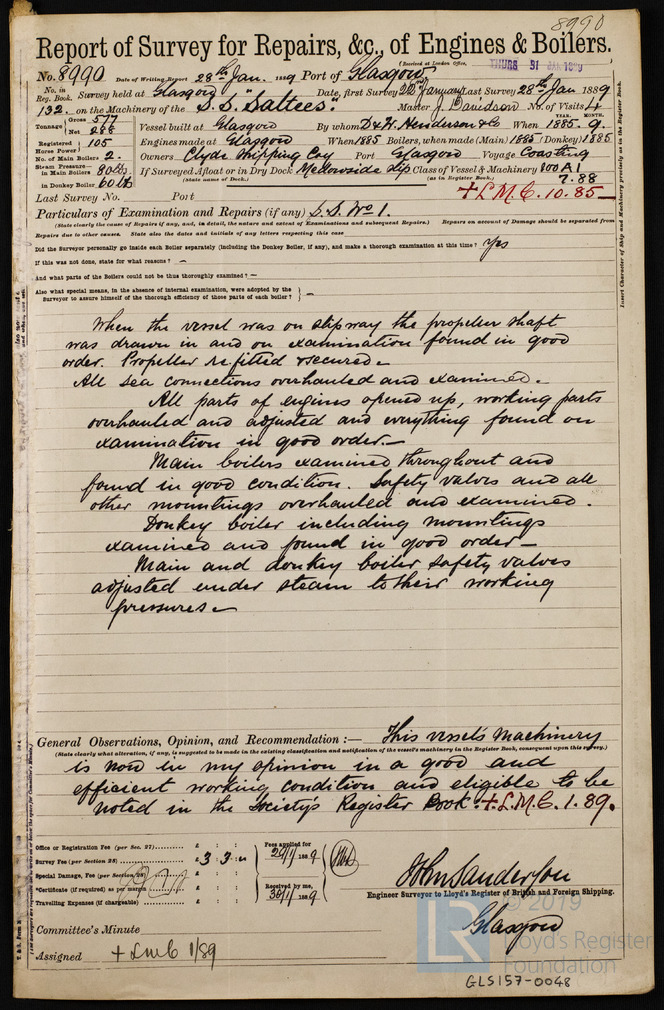 8990
Report of Survey for Repairs, &c., of Engines & Boilers.
(Received at London Office, THURS 31 JAN 1889
No. 8990 Date of Writing Report 28th Jan. 1889 Port of Glasgow
No. in Reg. Book. Survey held at Glasgow Date, first Survey 22nd January Last Survey 28th Jan 1889
132. on the Machinery of the S.S. "Saltees". Master J. Davidson No. of Visits 4
Tonnage Gross 577 Net 288
Vessel built at Glasgow By whom D & W. Henderson & Co When YEAR. 1885. MONTH. 9.
Registered Horse Power 105 Engines made at Glasgow When 1885 Boilers, when made (Main) 1885 (Donkey) 1885
No. of Main Boilers 2. Owners Clyde Shipping Coy Port Glasgow Voyage Coasting
Steam Pressure in Main Boilers 80 lbs If Surveyed Afloat or in Dry Dock Slip Class of Vessel & Machinery 100 A1
(State name of Dock.) (as in Register Book.) 7.88
in Donkey Boiler 60 lbs
Last Survey No. Port + L.M.C. 10.85
Particulars of Examination and Repairs (if any) S.S. No 1.
(State clearly the cause of Repairs if any, and, in detail, the nature and extent of Examinations and subsequent Repairs.) Repairs on account of Damage should be separated from
Repairs due to other causes. State also the dates and initials of any letters respecting this case
Did the Surveyor personally go inside each Boiler separately (including the Donkey Boiler, if any), and make a thorough examination at this time? Yes
If this was not done, state for what reasons? –
And what parts of the Boilers could not be thus thoroughly examined? –
Also what special means, in the absence of internal examination, were adopted by the
Surveyor to assure himself of the thorough efficiency of those parts of each boiler? } –
When the vessel was on slipway the propeller shaft
was drawn in and on examination found in good
order. Propeller refitted & secured –
All sea connections overhauled and examined. –
All parts of engines opened up, working parts
overhauled and adjusted and everything found on
examination in good order. –
Main boilers examined throughout and
found in good condition. Safety valves and all
other mountings overhauled and examined.
Donkey boiler including mountings
examined and found in good order –
Main and donkey boiler safety valves
adjusted under steam to their working
pressures –
General Observations, Opinion, and Recommendation :— This vessels Machinery
(State clearly what alteration, if any, is suggested to be made in the existing classification and notification of the vessel's machinery in the Register Book, consequent upon this survey.)
is now in my opinion in a good and
efficient working condition and eligible to be
noted in the Society's Register Book + L.M.C. 1.89.
Office or Registration Fee (per Sec. 27) £ : :
Survey Fee (per Section 28) £ 3 : 3 :
Special Damage, Fee (per Section 28) £ : :
Certificate (if required) as per margin £ : :
Travelling Expenses (if chargeable) £ : :
Fees applied for 29/1/1889
Received by me, 30/1/1889
John Sanderson
Engineer Surveyor to Lloyd's Register of British and Foreign Shipping.
Glasgow
Committee's Minute
Assigned + LMC 1/89
Insert Character of Ship and Machinery precisely as in the Register Book.
LR
© 2019
Lloyd's Register
Foundation
GLS157-0048